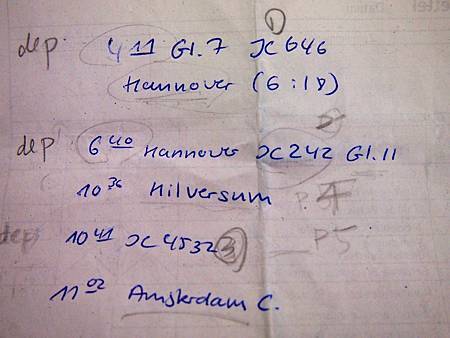 ①
dep. 4 11 Gl.7 IC 646
Hannover (6:18)
dep 6 40 Hannover IC242 Gl.11
10 36 Hilversum
dep 10 41 IC 4532 3 P5
11 02 Amsterdam C.